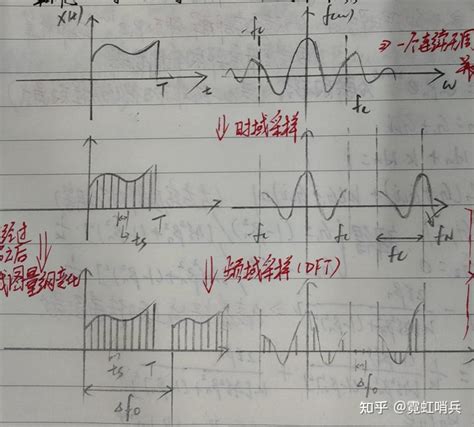 x(t)
-fc
f(w)
⇒一个连续无周
T
t
fc
w
⇓时域采样
ts
T
-fc
fc
fc
fN
经过
之后
⇓频域采样(DFT)
ts
T
Δf0
Δf0
知乎 @霓虹哨兵